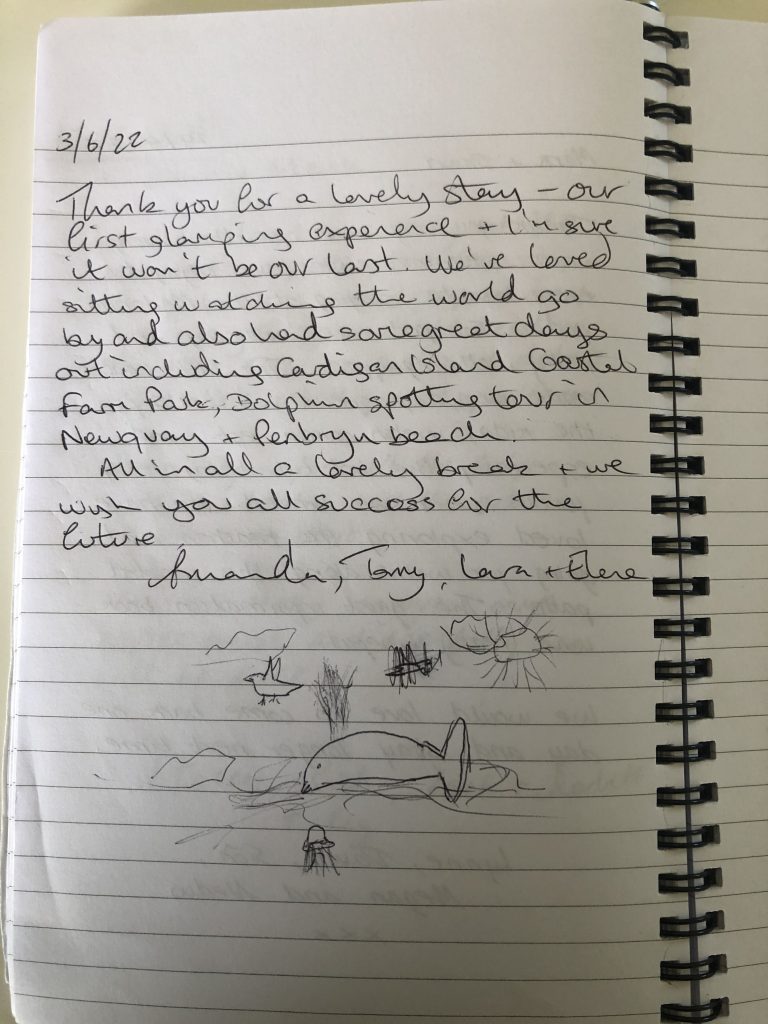 3/6/22
Thank you for a lovely stay – our
first glamping experience + I'm sure
it won't be our last. We've loved
sitting watching the world go
by and also had some great days
out including Cardigan Island Coastal
Farm Park, Dolphin spotting tour in
Newquay + Penbryn beach.
All in all a lovely break + we
wish you all success for the
future
Amanda, Tony, Lara + Elena